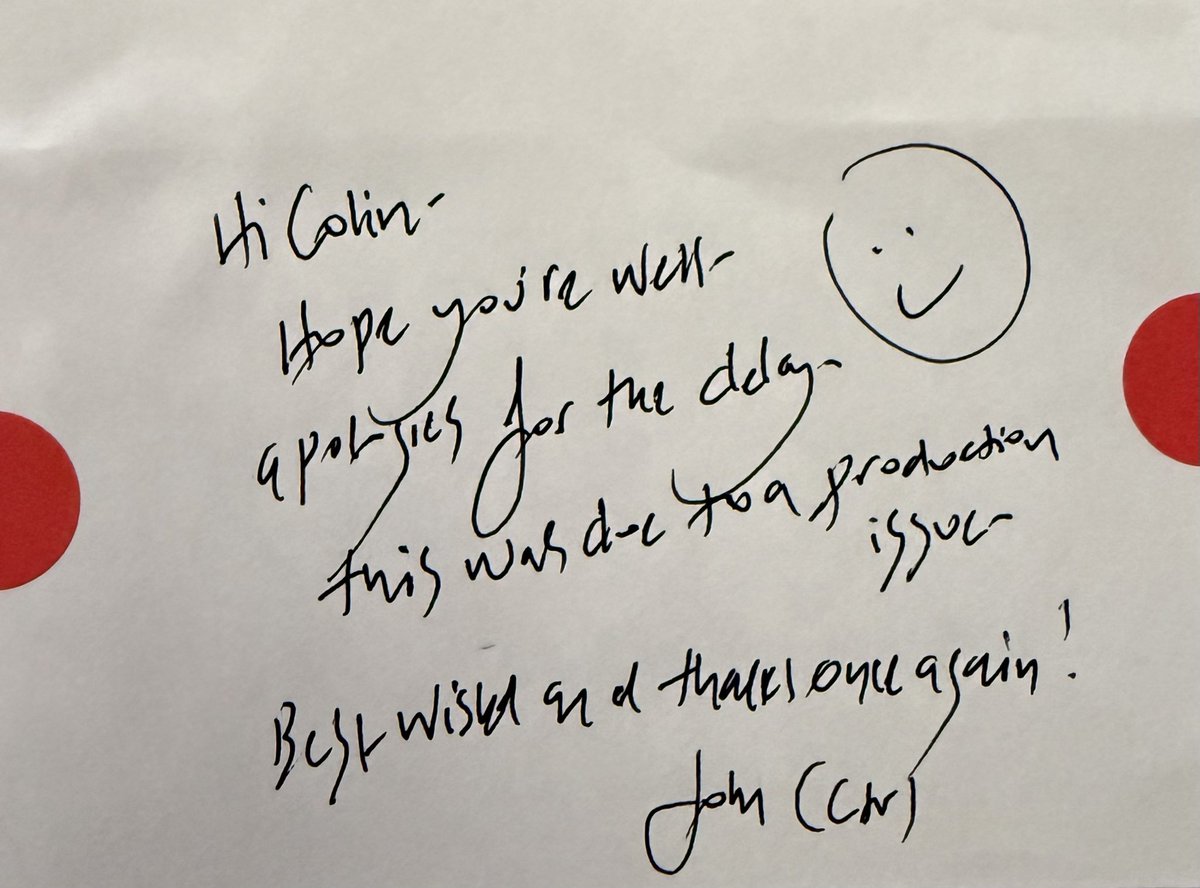 Hi Colin-
Hope you're well-
apologies for the delay-
this was due to a production
issue-
Best wishes and thanks once again!
John